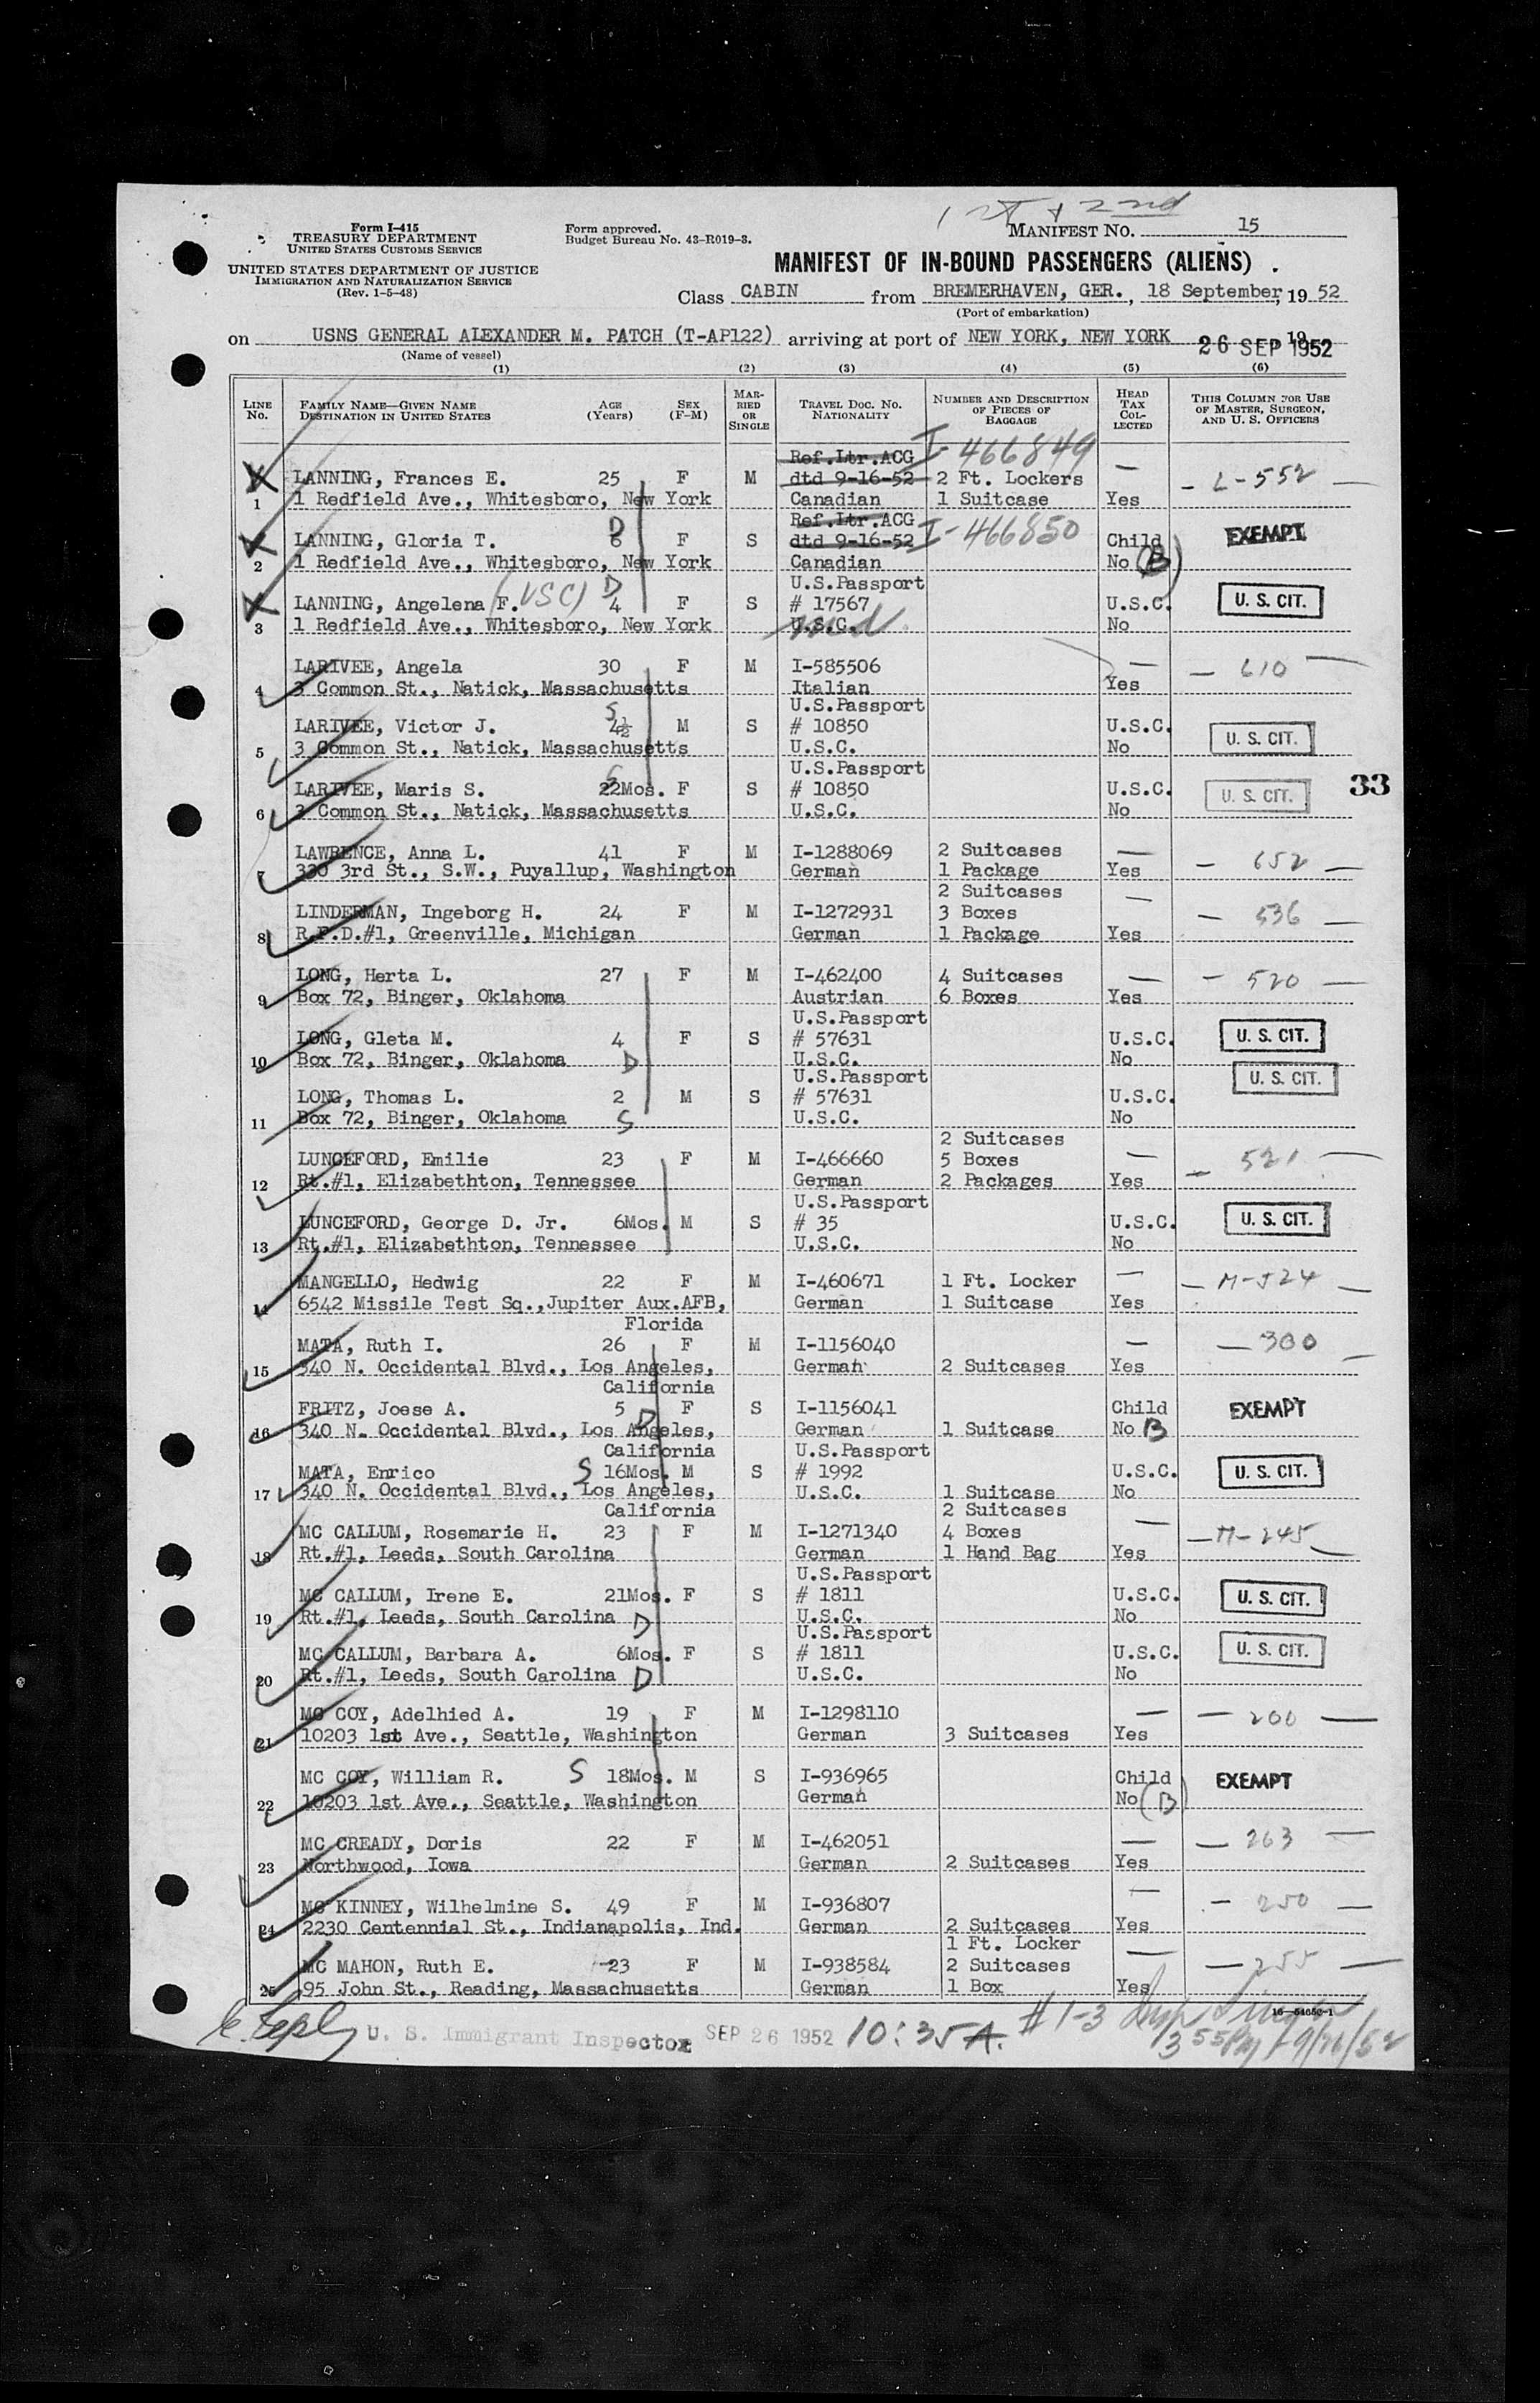 1st & 2nd
Form I-415
TREASURY DEPARTMENT
UNITED STATES CUSTOMS SERVICE
UNITED STATES DEPARTMENT OF JUSTICE
IMMIGRATION AND NATURALIZATION SERVICE
(Rev. 1-5-48)
Form approved.
Budget Bureau No. 43-R019-3.
MANIFEST NO. 15
MANIFEST OF IN-BOUND PASSENGERS (ALIENS)
Class CABIN from BREMERHAVEN, GER., 18 September, 19 52
(Port of embarkation)
on USNS GENERAL ALEXANDER M. PATCH (T-AP122) arriving at port of NEW YORK, NEW YORK 26 SEP 1952
(Name of vessel)
(1) (2) (3) (4) (5) (6)
LINE No. FAMILY NAME—GIVEN NAME DESTINATION IN UNITED STATES AGE (Years) SEX (F-M) MARRIED OR SINGLE TRAVEL DOC. NO. NATIONALITY NUMBER AND DESCRIPTION OF PIECES OF BAGGAGE HEAD TAX COLLECTED THIS COLUMN FOR USE OF MASTER, SURGEON, AND U. S. OFFICERS
Ref.Ltr.ACG I-466849
LANNING, Frances E. 25 F M dtd 9-16-52 2 Ft. Lockers — L-552 —
1 1 Redfield Ave., Whitesboro, New York Canadian 1 Suitcase Yes
D Ref.Ltr.ACG
LANNING, Gloria T. 6 F S dtd 9-16-52 I-466850 Child EXEMPT
2 1 Redfield Ave., Whitesboro, New York Canadian No (B)
D U.S.Passport
LANNING, Angelena F. (USC) 4 F S # 17567 U.S.C. U. S. CIT.
3 1 Redfield Ave., Whitesboro, New York U.S.C. No
LARIVEE, Angela 30 F M I-585506 — 610 —
4 3 Common St., Natick, Massachusetts Italian Yes
S U.S.Passport
LARIVEE, Victor J. 4½ M S # 10850 U.S.C. U. S. CIT.
5 3 Common St., Natick, Massachusetts U.S.C. No
U.S.Passport
LARIVEE, Maris S. 22Mos. F S # 10850 U.S.C. U. S. CIT.
6 3 Common St., Natick, Massachusetts U.S.C. No
33
LAWRENCE, Anna L. 41 F M I-1288069 2 Suitcases — 652 —
7 330 3rd St., S.W., Puyallup, Washington German 1 Package Yes
2 Suitcases
LINDERMAN, Ingeborg H. 24 F M I-1272931 3 Boxes — 536 —
8 R.F.D.#1, Greenville, Michigan German 1 Package Yes
LONG, Herta L. 27 F M I-462400 4 Suitcases — 520 —
9 Box 72, Binger, Oklahoma Austrian 6 Boxes Yes
U.S.Passport
LONG, Gleta M. 4 F S # 57631 U.S.C. U. S. CIT.
10 Box 72, Binger, Oklahoma D U.S.C. No
U.S.Passport U. S. CIT.
LONG, Thomas L. 2 M S # 57631 U.S.C.
11 Box 72, Binger, Oklahoma S U.S.C. No
2 Suitcases
LUNCEFORD, Emilie 23 F M I-466660 5 Boxes — 521 —
12 Rt.#1, Elizabethton, Tennessee German 2 Packages Yes
U.S.Passport
LUNCEFORD, George D. Jr. 6Mos. M S # 35 U.S.C. U. S. CIT.
13 Rt.#1, Elizabethton, Tennessee U.S.C. No
MANGELLO, Hedwig 22 F M I-460671 1 Ft. Locker — M-524 —
14 6542 Missile Test Sq.,Jupiter Aux.AFB, German 1 Suitcase Yes
Florida
MATA, Ruth I. 26 F M I-1156040 — 300 —
15 340 N. Occidental Blvd., Los Angeles, German 2 Suitcases Yes
California
FRITZ, Joese A. 5 F S I-1156041 Child EXEMPT
16 340 N. Occidental Blvd., Los Angeles, D German 1 Suitcase No B
California U.S.Passport
MATA, Enrico S 16Mos. M S # 1992 U.S.C. U. S. CIT.
17 340 N. Occidental Blvd., Los Angeles, U.S.C. 1 Suitcase No
California 2 Suitcases
MC CALLUM, Rosemarie H. 23 F M I-1271340 4 Boxes — M-245 —
18 Rt.#1, Leeds, South Carolina German 1 Hand Bag Yes
U.S.Passport
MC CALLUM, Irene E. 21Mos. F S # 1811 U.S.C. U. S. CIT.
19 Rt.#1, Leeds, South Carolina D U.S.C. No
U.S.Passport
MC CALLUM, Barbara A. 6Mos. F S # 1811 U.S.C. U. S. CIT.
20 Rt.#1, Leeds, South Carolina D U.S.C. No
MC COY, Adelhied A. 19 F M I-1298110 — 200 —
21 10203 1st Ave., Seattle, Washington German 3 Suitcases Yes
MC COY, William R. S 18Mos. M S I-936965 Child EXEMPT
22 10203 1st Ave., Seattle, Washington German No (B)
MC CREADY, Doris 22 F M I-462051 — 263 —
23 Northwood, Iowa German 2 Suitcases Yes
MC KINNEY, Wilhelmine S. 49 F M I-936807 — 250 —
24 2230 Centennial St., Indianapolis, Ind. German 2 Suitcases Yes
1 Ft. Locker
MC MAHON, Ruth E. 23 F M I-938584 2 Suitcases — 255 —
25 95 John St., Reading, Massachusetts German 1 Box Yes
U. S. Immigrant Inspector SEP 26 1952 10:35 A. #1-3
3 55 PM 9/26/52